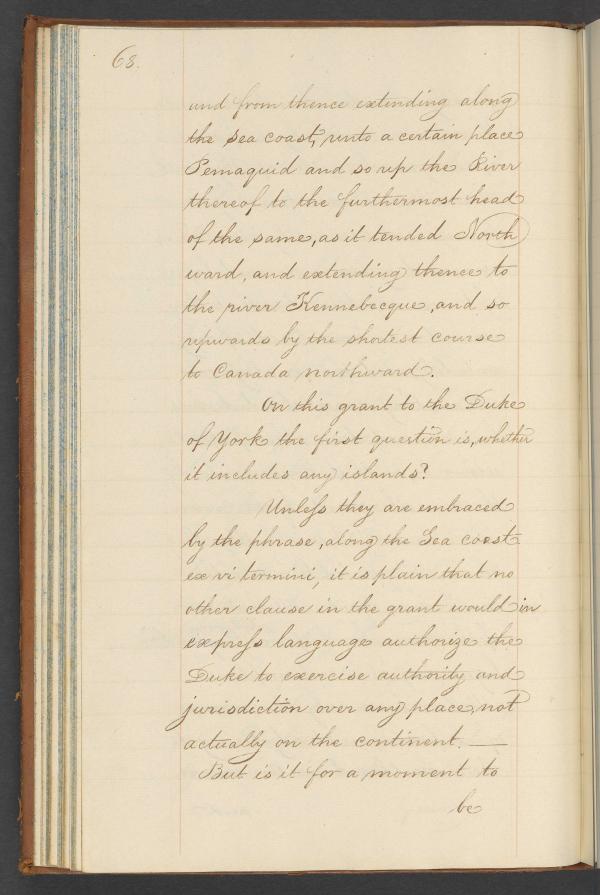 68.
and from thence extending along
the sea coast, unto a certain place
Pemaquid and so up the River
thereof to the furthermost head
of the same, as it tended North
ward, and extending thence to
the river Kennebecque, and so
upwards by the shortest course
to Canada northward.
On this grant to the Duke
of York the first question is, whether
it includes any islands?
Unless they are embraced
by the phrase, along the Sea coast
ex vi termini, it is plain that no
other clause in the grant would in
express language authorize the
Duke to exercise authority and
jurisdiction over any place, not
actually on the continent. —
But is it for a moment to
be